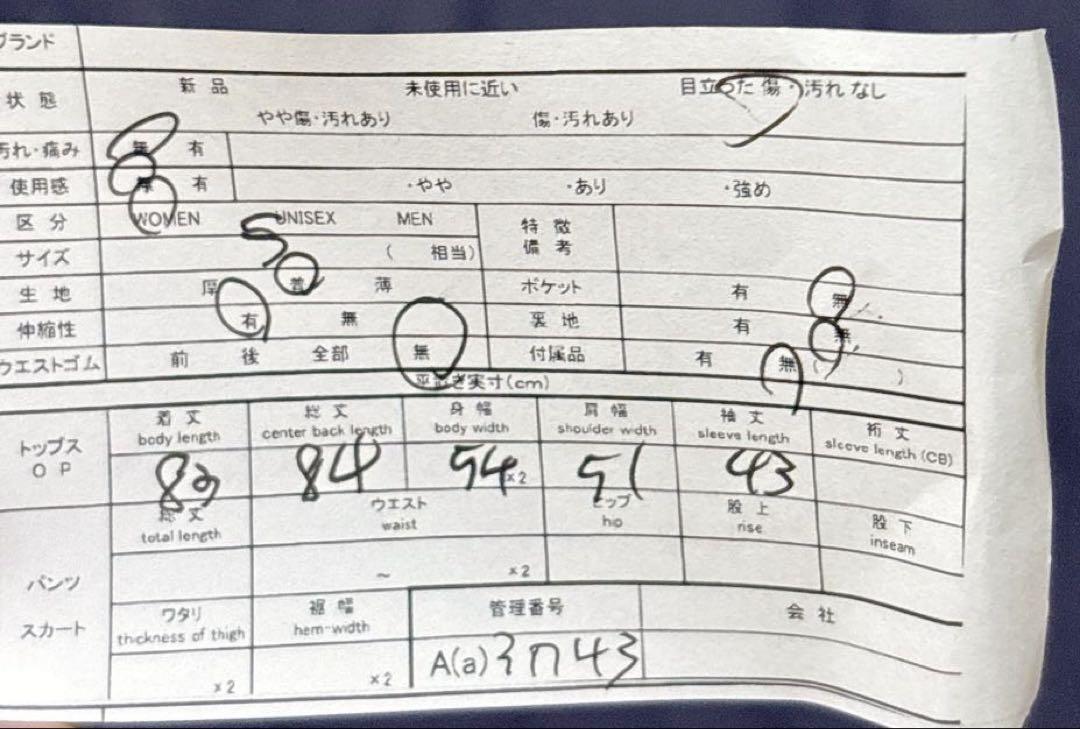 ブランド
状態 新品 未使用に近い 目立った傷・汚れなし
やや傷・汚れあり 傷・汚れあり
汚れ・痛み 無 有
使用感 無 有 ・やや ・あり ・強め
区分 WOMEN UNISEX MEN 特徴
サイズ ( 相当) 備考
生地 厚 普 薄 ポケット 有 無
伸縮性 有 無 裏地 有 無
ウエストゴム 前 後 全部 無 付属品 有 無 ( )
平置き実寸(cm)
着丈 総丈 身幅 肩幅 袖丈 裄丈
トップス body length center back length body width shoulder width sleeve length sleeve length (CB)
OP 84 54 x2 51 43
総丈 ウエスト ヒップ 股上 股下
total length waist hip rise inseam
パンツ ~ x2
ワタリ 裾幅 管理番号 会社
スカート thickness of thigh hem-width
x2 x2 A(a) 43